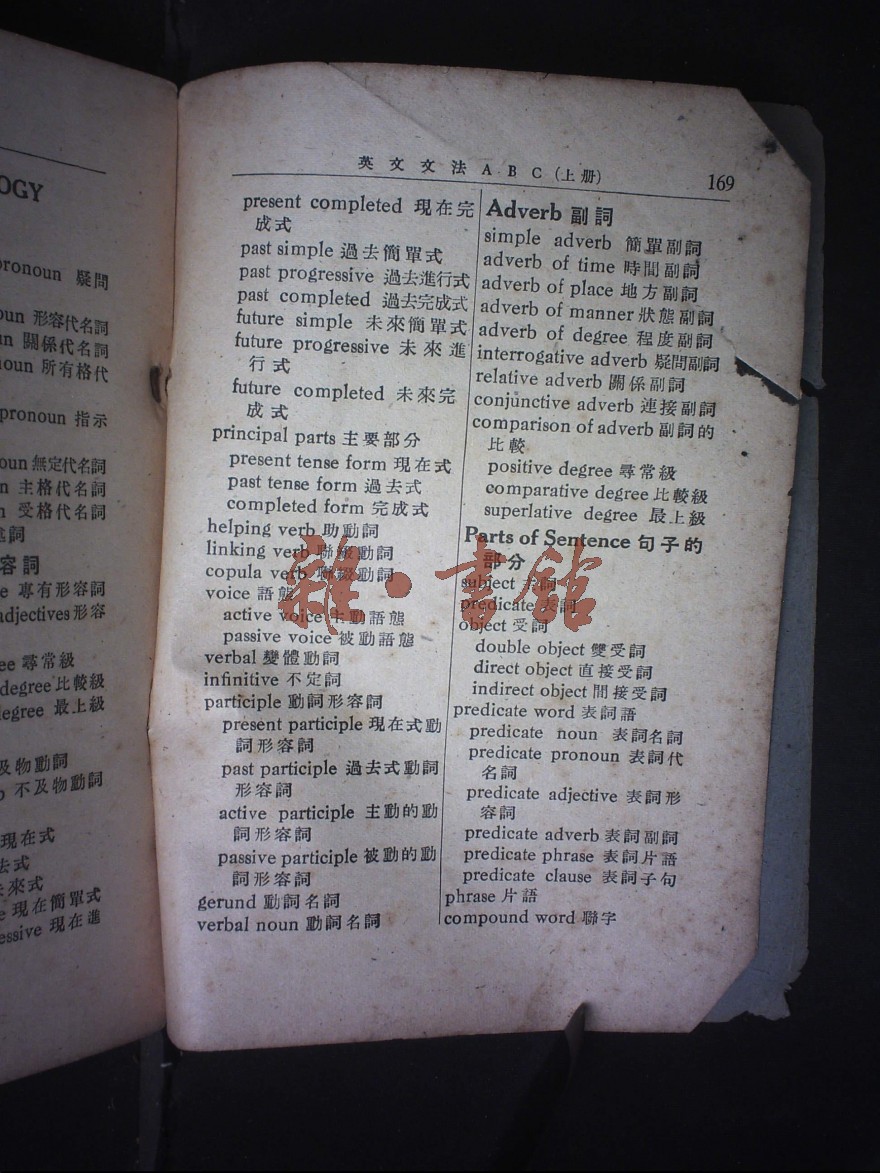 OGY
pronoun 疑問
oun 形容代名詞
un 關係代名詞
noun 所有格代
pronoun 指示
oun 無定代名詞
n 主格代名詞
n 受格代名詞
容詞
e 專有形容詞
adjectives 形容
ee 尋常級
degree 比較級
degree 最上級
及物動詞
b 不及物動詞
現在式
去式
未來式
e 現在簡單式
essive 現在進
英文文法ABC(上册) 169
present completed 現在完
成式
past simple 過去簡單式
past progressive 過去進行式
past completed 過去完成式
future simple 未來簡單式
future progressive 未來進
行式
future completed 未來完
成式
principal parts 主要部分
present tense form 現在式
past tense form 過去式
completed form 完成式
helping verb 助動詞
linking verb 聯綴動詞
copula verb 聯綴動詞
voice 語態
active voice 主動語態
passive voice 被動語態
verbal 變體動詞
infinitive 不定詞
participle 動詞形容詞
present participle 現在式動
詞形容詞
past participle 過去式動詞
形容詞
active participle 主動的動
詞形容詞
passive participle 被動的動
詞形容詞
gerund 動詞名詞
verbal noun 動詞名詞
Adverb 副詞
simple adverb 簡單副詞
adverb of time 時間副詞
adverb of place 地方副詞
adverb of manner 狀態副詞
adverb of degree 程度副詞
interrogative adverb 疑問副詞
relative adverb 關係副詞
conjunctive adverb 連接副詞
comparison of adverb 副詞的
比較
positive degree 尋常級
comparative degree 比較級
superlative degree 最上級
Parts of Sentence 句子的
部分
subject 主詞
predicate 表詞
object 受詞
double object 雙受詞
direct object 直接受詞
indirect object 間接受詞
predicate word 表詞語
predicate noun 表詞名詞
predicate pronoun 表詞代
名詞
predicate adjective 表詞形
容詞
predicate adverb 表詞副詞
predicate phrase 表詞片語
predicate clause 表詞子句
phrase 片語
compound word 聯字
雜·書館